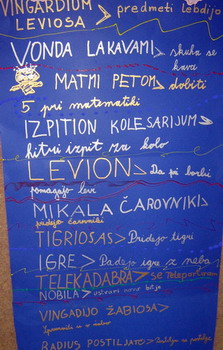 VINGARDIUM > predmeti lebdijo
LEVIOSA
VONDA LAKAVAMI > skuha se kava
MATMI PETOM > dobiti
5 pri matematiki
IZPITION KOLESARIJUM >
hitri izpit za kolo
LEVION > Da pi borbi
pomagajo levi
MIKALA ČAROVNIKI >
padejo čarovniki
TIGRIOSAS > Pridejo tigri
IGRE > Padejo igre z neba
TELEKADABRA > se teleportiram
NOBILA > ustvari novo bitje
VINGADIJO ŽABIOSA >
Spremeniš se v žabo
RADIUS POSTILJATO >